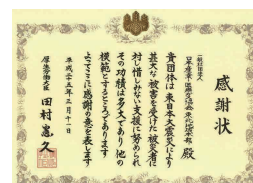 感謝状
一般社団法人
日本産業・医療ガス協会 東北地域本部 殿
貴団体は東日本大震災により
甚大な被害を受けた被災者に
対し惜しみない支援に努められ
その功績は多大であり他の
模範とするところであります
よってここに感謝の意を表します
平成二十五年三月十一日
厚生労働大臣 田村憲久